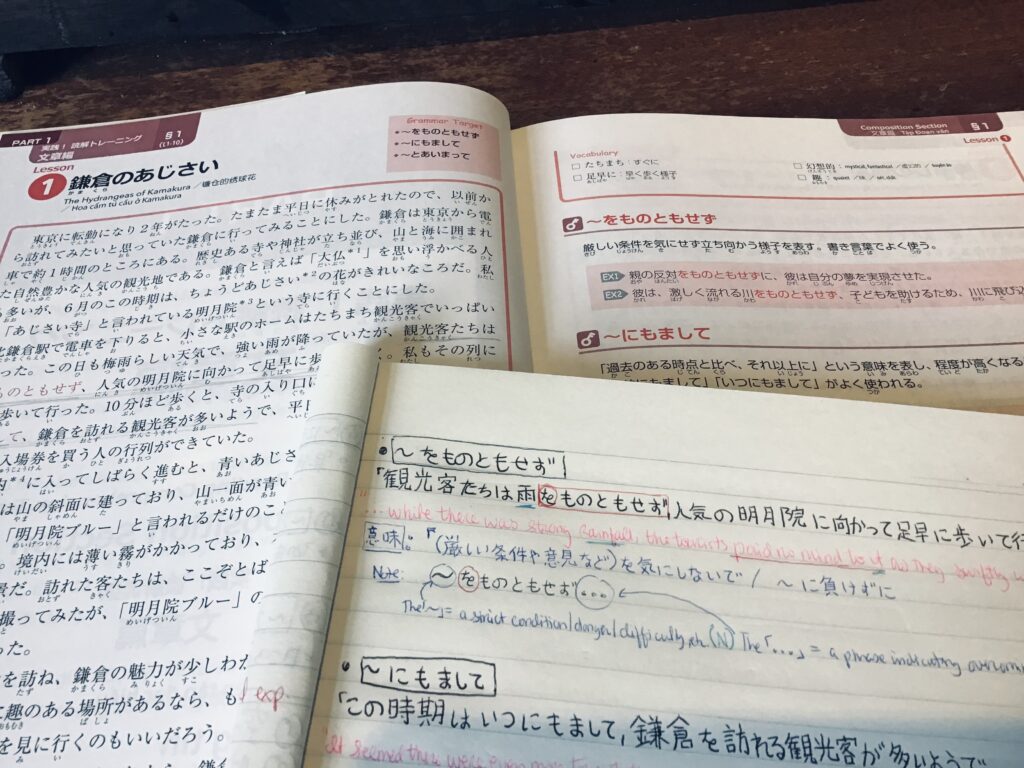 PART 1
実践！読解トレーニング
文章編
§1
(L1-10)
Lesson
1 鎌倉のあじさい
The Hydrangeas of Kamakura / 镰仓的绣球花
/ Hoa cẩm tú cầu ở Kamakura
Grammar Target
●～をものともせず
●～にもまして
●～とあいまって
東京に転勤になり2年がたった。たまたま平日に休みがとれたので、以前か
ら訪れてみたいと思っていた鎌倉に行ってみることにした。鎌倉は東京から電
車で約1時間のところにある。歴史ある寺や神社が立ち並び、山と海に囲まれ
た自然豊かな人気の観光地である。鎌倉と言えば「大仏*1」を思い浮かべる人
も多いが、6月のこの時期は、ちょうどあじさい*2の花がきれいなころだ。私
「あじさい寺」と言われている明月院*3という寺に行くことにした。
北鎌倉駅で電車を下りると、小さな駅のホームはたちまち観光客でいっぱい
った。この日も梅雨らしい天気で、強い雨が降っていたが、観光客たちは
ものともせず、人気の明月院に向かって足早に歩
く。私もその列に
歩いて行った。10分ほど歩くと、寺の入り口に
して、鎌倉を訪れる観光客が多いようで、平日
入場券を買う人の行列ができていた。
内*4に入ってしばらく進むと、青いあじさ
は山の斜面に建っており、山一面が青い
「明月院ブルー」と言われるだけのこ
。境内には薄い霧がかかっており、
景だ。訪れた客たちは、ここぞとば
撮ってみたが、「明月院ブルー」の
った。
を訪ね、鎌倉の魅力が少しわか
に趣のある場所があるなら、も
を見に行くのもいいだろう。
Composition Section
文章編 Tập Đoạn văn
§1
Lesson 1
Vocabulary
□ たちまち：すぐに
□ 足早に：早く歩く様子
□ 幻想的：mystical, fantastical
□ 趣：
～をものともせず
厳しい条件を気にせず立ち向かう様子を表す。書き言葉でよく使う。
EX1 親の反対をものともせずに、彼は自分の夢を実現させた。
EX2 彼は、激しく流れる川をものともせず、子どもを助けるため、川に飛び込
～にもまして
「過去のある時点と比べ、それ以上に」という意味を表し、程度が高くなる
にもまして」「いつにもまして」がよく使われる。
• ～をものともせず
「観光客たちは雨をものともせず人気の明月院に向かって足早に歩いて行
... while there was strong rainfall, the tourists paid no mind to it as they swiftly w
意味：「(厳しい条件や意見など)を気にしないで / ～に負けずに
Note: ～をものともせず ...
The「～」= a strict condition/danger/difficulty etc. (N) The「...」= a phrase indicating overcom
• ～にもまして
「この時期はいつにもまして, 鎌倉を訪れる観光客が多いようで
exp
It seemed there were even more to